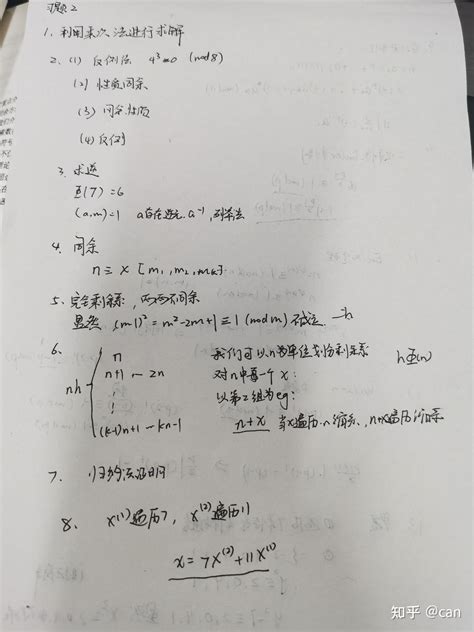 习题2
1. 利用乘次法进行求解
2. (1) 反例法 4³≡0 (mod8)
(2) 性质,同余
(3) 同余性质
(4) 反例
3. 求逆
φ(7)=6
(a,m)=1 a存在逆元 a⁻¹,
4. 同余
n≡x [m₁,m₂,mk]
5. 完全剩余系,两两不同余
显然 (m-1)²=m²-2m+1≡1(modm) 不成立
6. n
n+1 ~ 2n
nh
(k-1)n+1 ~ kn-1
我们可以n为单位划份剩余系
对n中每一个x:
以第2组为eg:
n+x 当x遍历n缩系,n+x遍历缩系
7. 归纳法证明
8. x⁽¹⁾遍历7, x⁽²⁾遍历11
x=7x⁽²⁾+11x⁽¹⁾
知乎 @can